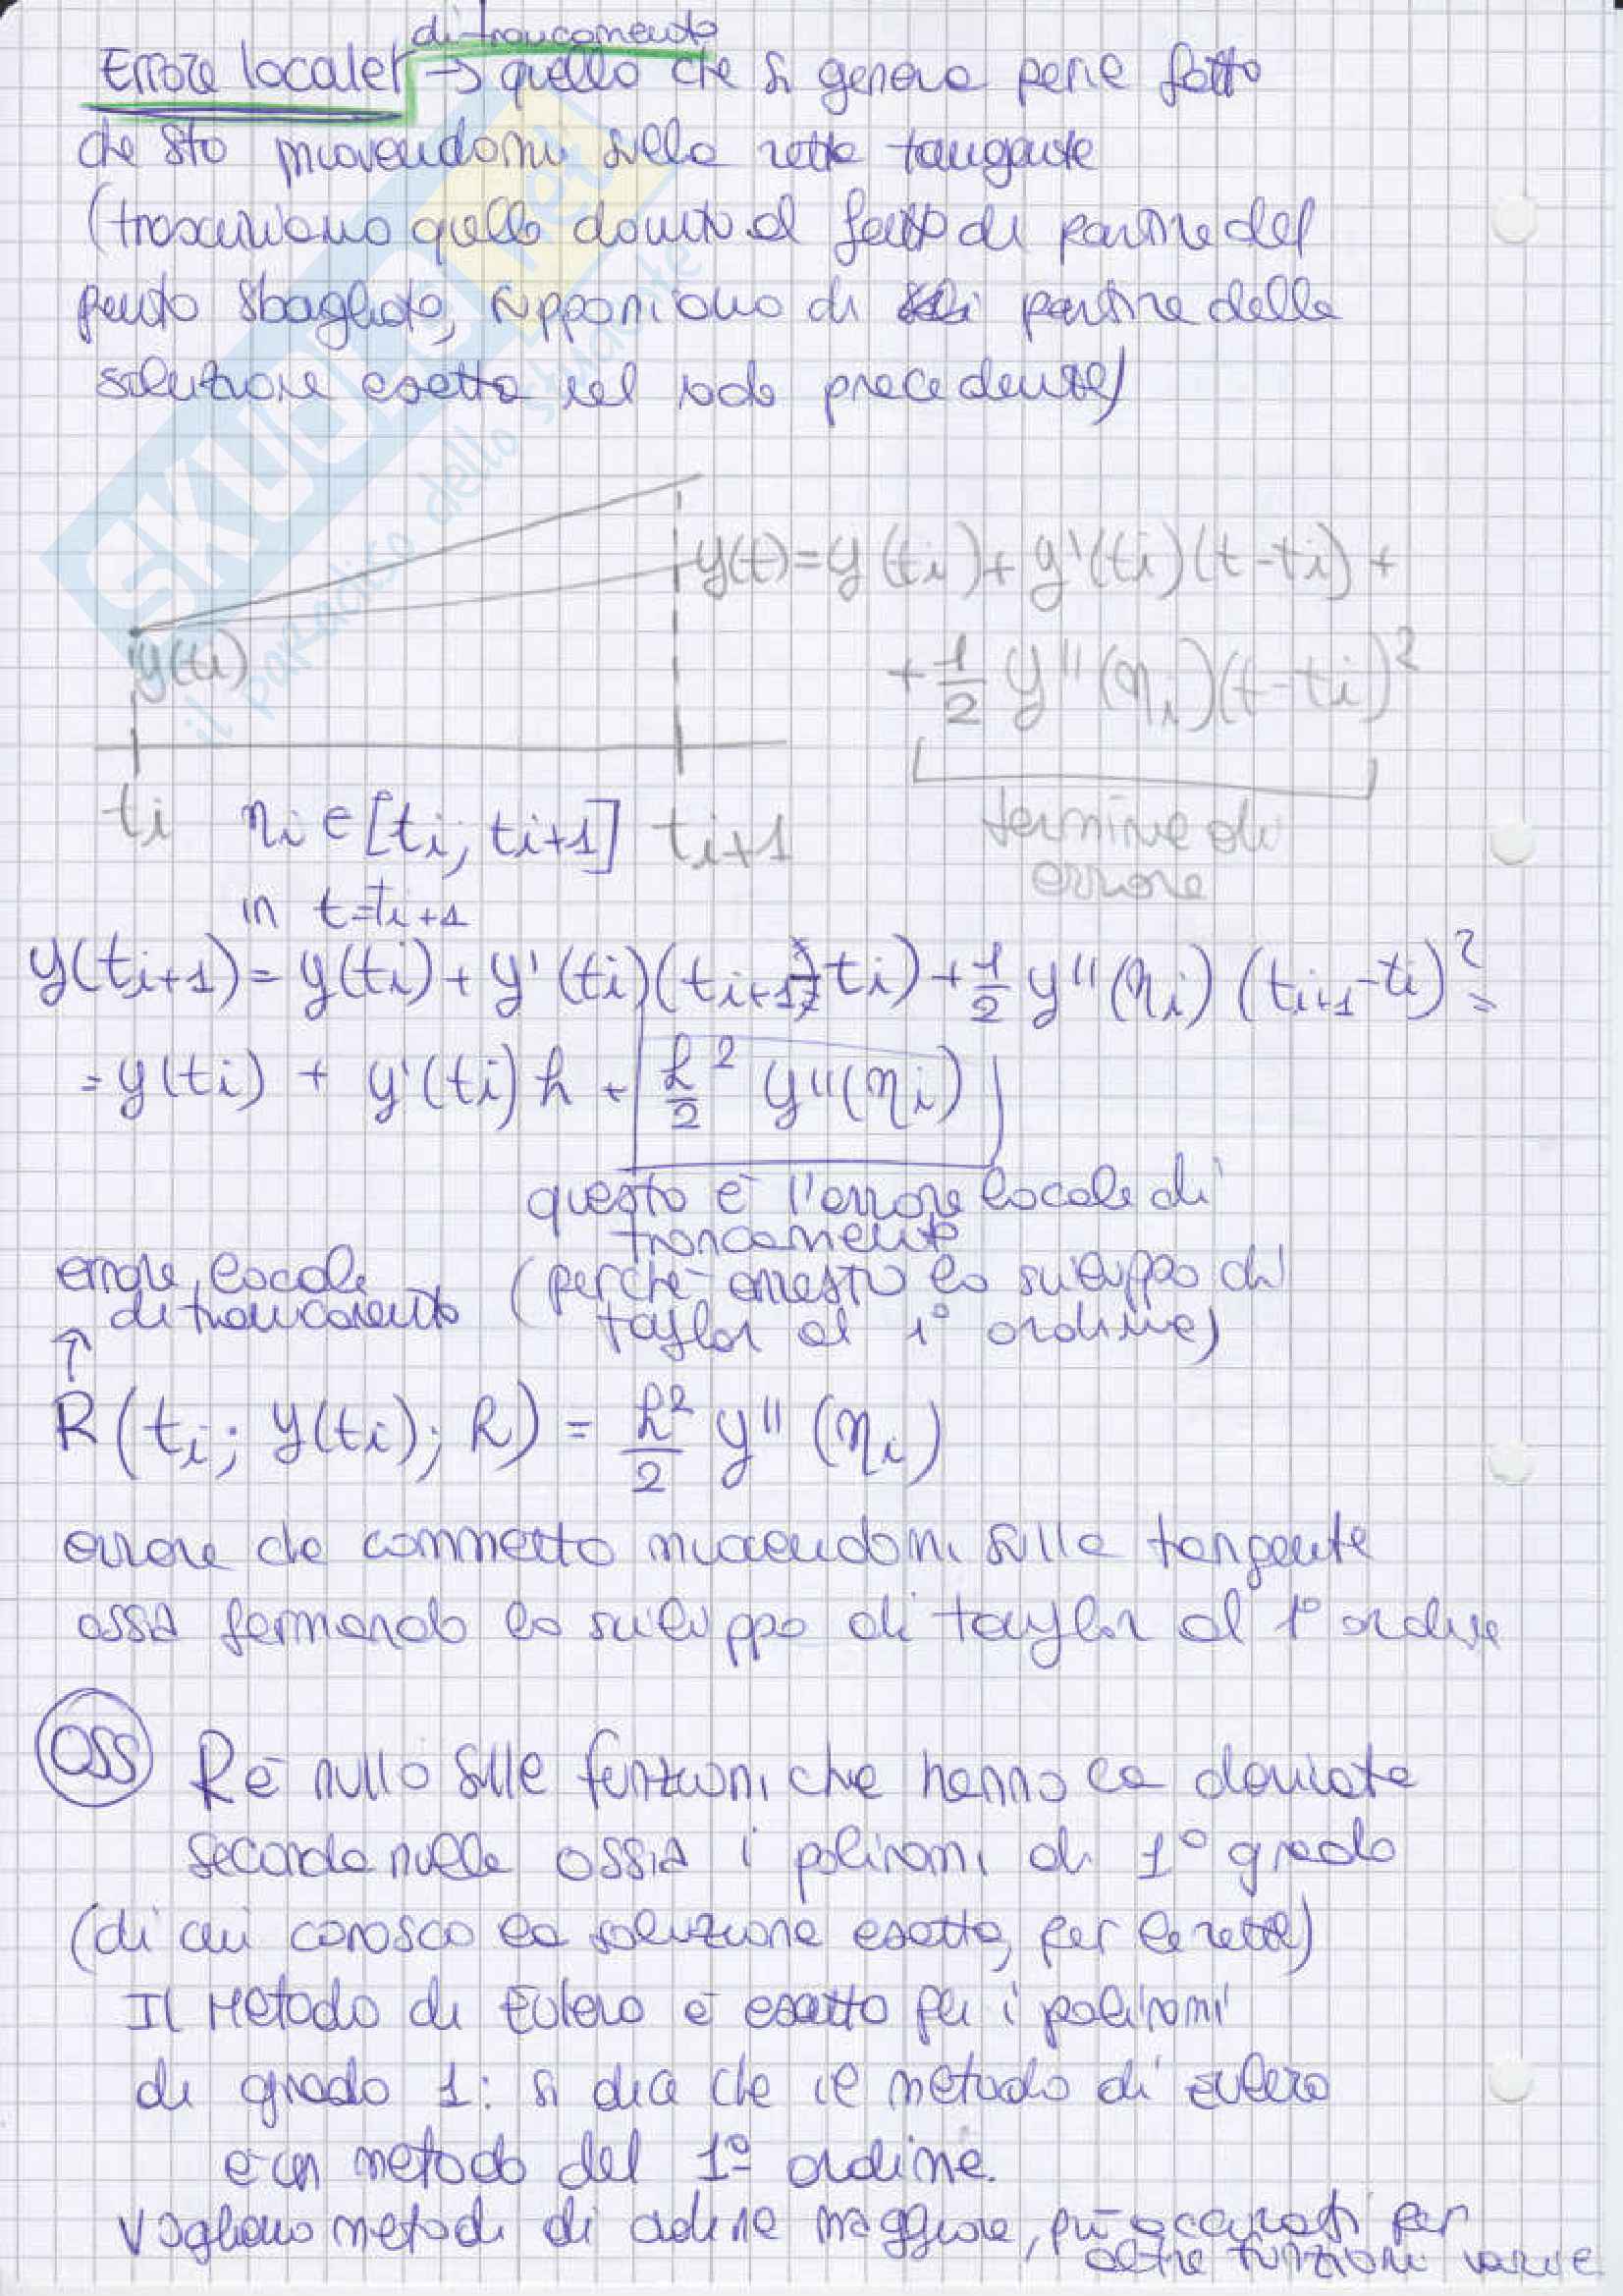 di troncamento
Errore locale → quello che si genera per il fatto
che sto muovendomi sulla retta tangente
(trascuriamo quello dovuto al fatto di partire dal
punto sbagliato, supponiamo di partire dalla
soluzione esatta nel nodo precedente)
SKUOLA.net
il paradiso dello studente
y(t)=y(ti)+y'(ti)(t-ti)+
y(ti)
+1/2 y''(ηi)(t-ti)²
ti ηi ∈ [ti; ti+1] ti+1
termine di
errore
in t=ti+1
y(ti+1)=y(ti)+y'(ti)(ti+1-ti)+1/2 y''(ηi)(ti+1-ti)²=
=y(ti) + y'(ti)h + h²/2 y''(ηi)
questo è l'errore locale di
troncamento
(perché arresto lo sviluppo di
taylor al 1° ordine)
errore locale
di troncamento
↑
R(ti; y(ti); h) = h²/2 y''(ηi)
errore che commetto muovendomi sulla tangente
ossia fermando lo sviluppo di taylor al 1° ordine
OSS R è nullo sulle funzioni che hanno la derivata
seconda nulla ossia i polinomi di 1° grado
(di cui conosco la soluzione esatta, per le rette)
Il Metodo di Eulero è esatto per i polinomi
di grado 1: si dice che il metodo di eulero
è un metodo del 1° ordine.
Vogliamo metodi di ordine maggiore, più accurati per
altre funzioni varie